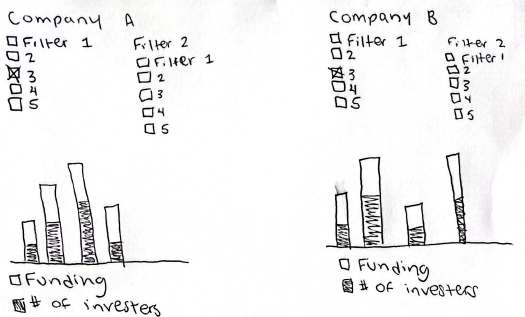 Company A
Filter 1
2
3
4
5
Filter 2
Filter 1
2
3
4
5
Funding
# of investers
Company B
Filter 1
2
3
4
5
Filter 2
Filter 1
2
3
4
5
Funding
# of investers